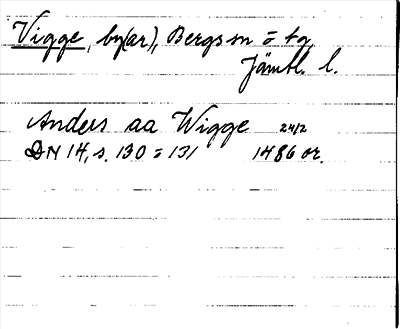 Vigge, by(ar), Bergs sn o tg
Jämtl. l.
Anders aa Wigge 24/2
DN 14, s. 130 - 131 1486 or.